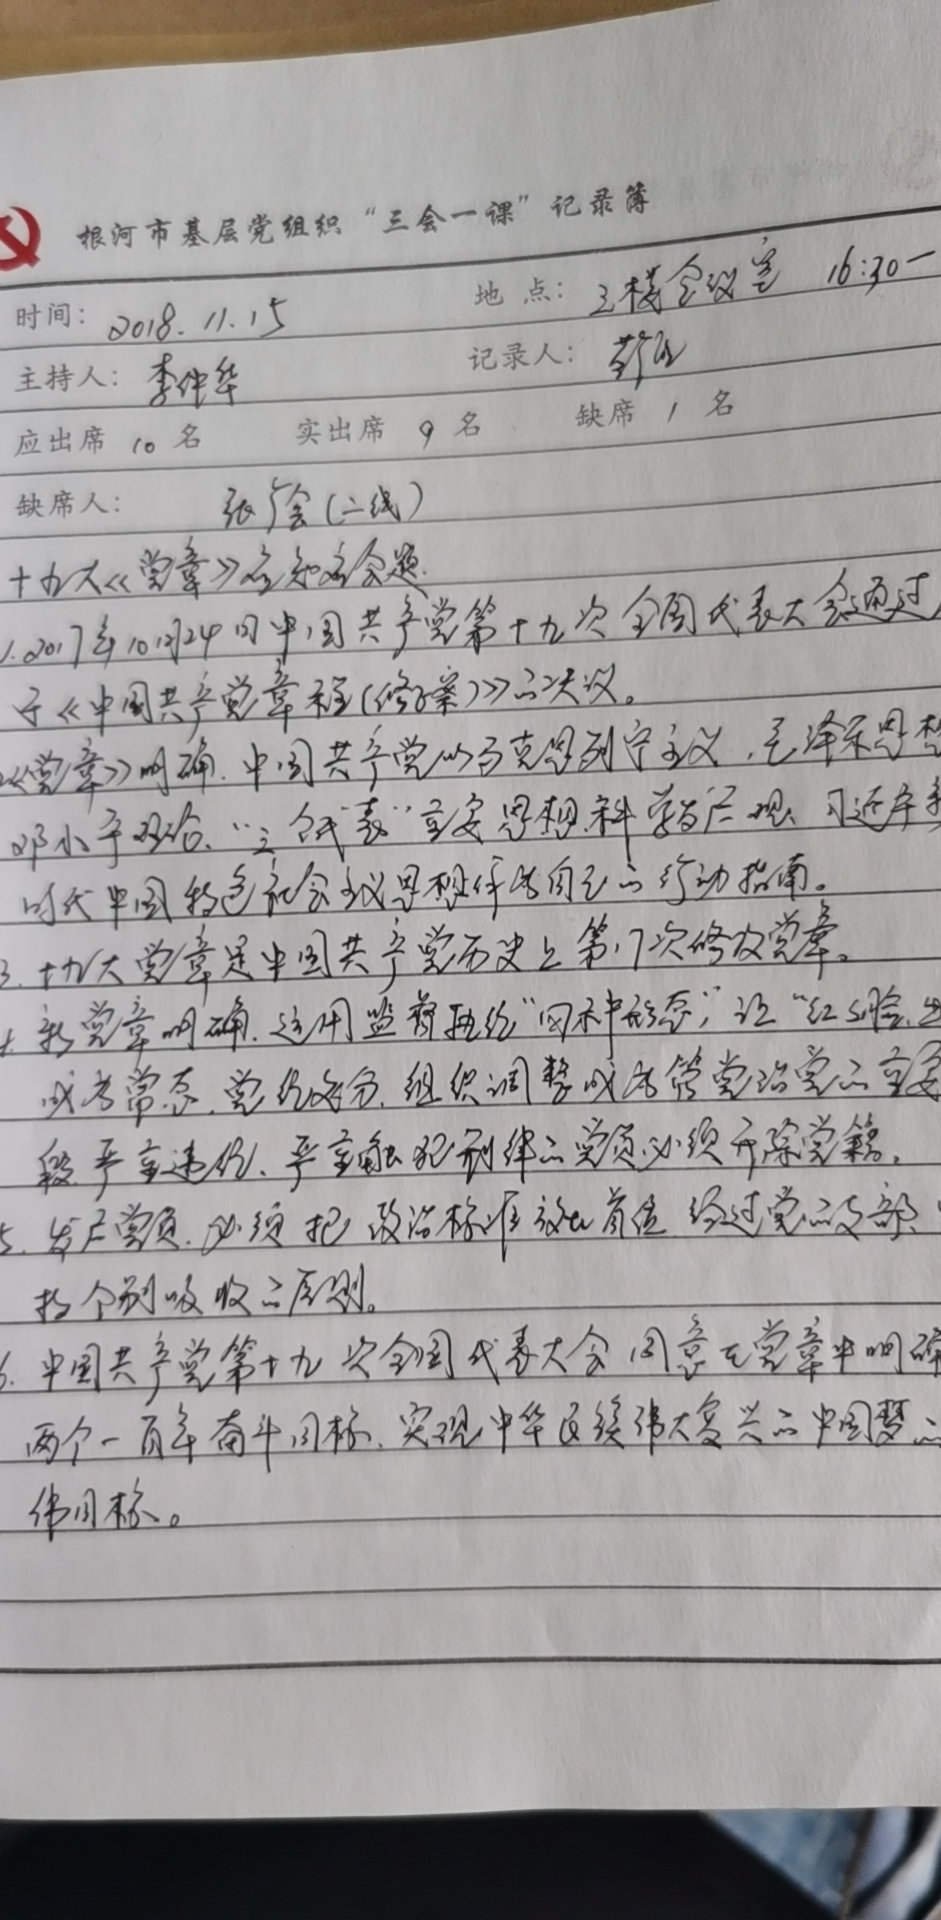 根河市基层党组织“三会一课”记录簿
时间: 2018.11.15 地点: 三楼会议室 16:30一
主持人: 李仲华 记录人:
应出席 10 名 实出席 9 名 缺席 1 名
缺席人: 张广会(二线)
十九大《党章》应知应会题.
1.2017年10月24日中国共产党第十九次全国代表大会通过
于《中国共产党章程(修正案)》的决议。
《党章》明确.中国共产党以马克思列宁主义.毛泽东思想
邓小平理论、“三个代表”重要思想、科学发展观、习近平新
时代中国特色社会主义思想作为自己的行动指南。
3.十九大党章是中国共产党历史上第17次修改党章。
新党章明确.运用监督执纪“四种形态”,让“红红脸、出
成为常态.党纪处分.组织调整成为管党治党的重要
段严重违纪、严重触犯刑律的党员必须开除党籍。
5.发展党员.必须把政治标准放在首位 经过党的支部、
持个别吸收的原则。
6.中国共产党第十九次全国代表大会同意在党章中明确
两个一百年奋斗目标.实现中华民族伟大复兴的中国梦的
伟目标。